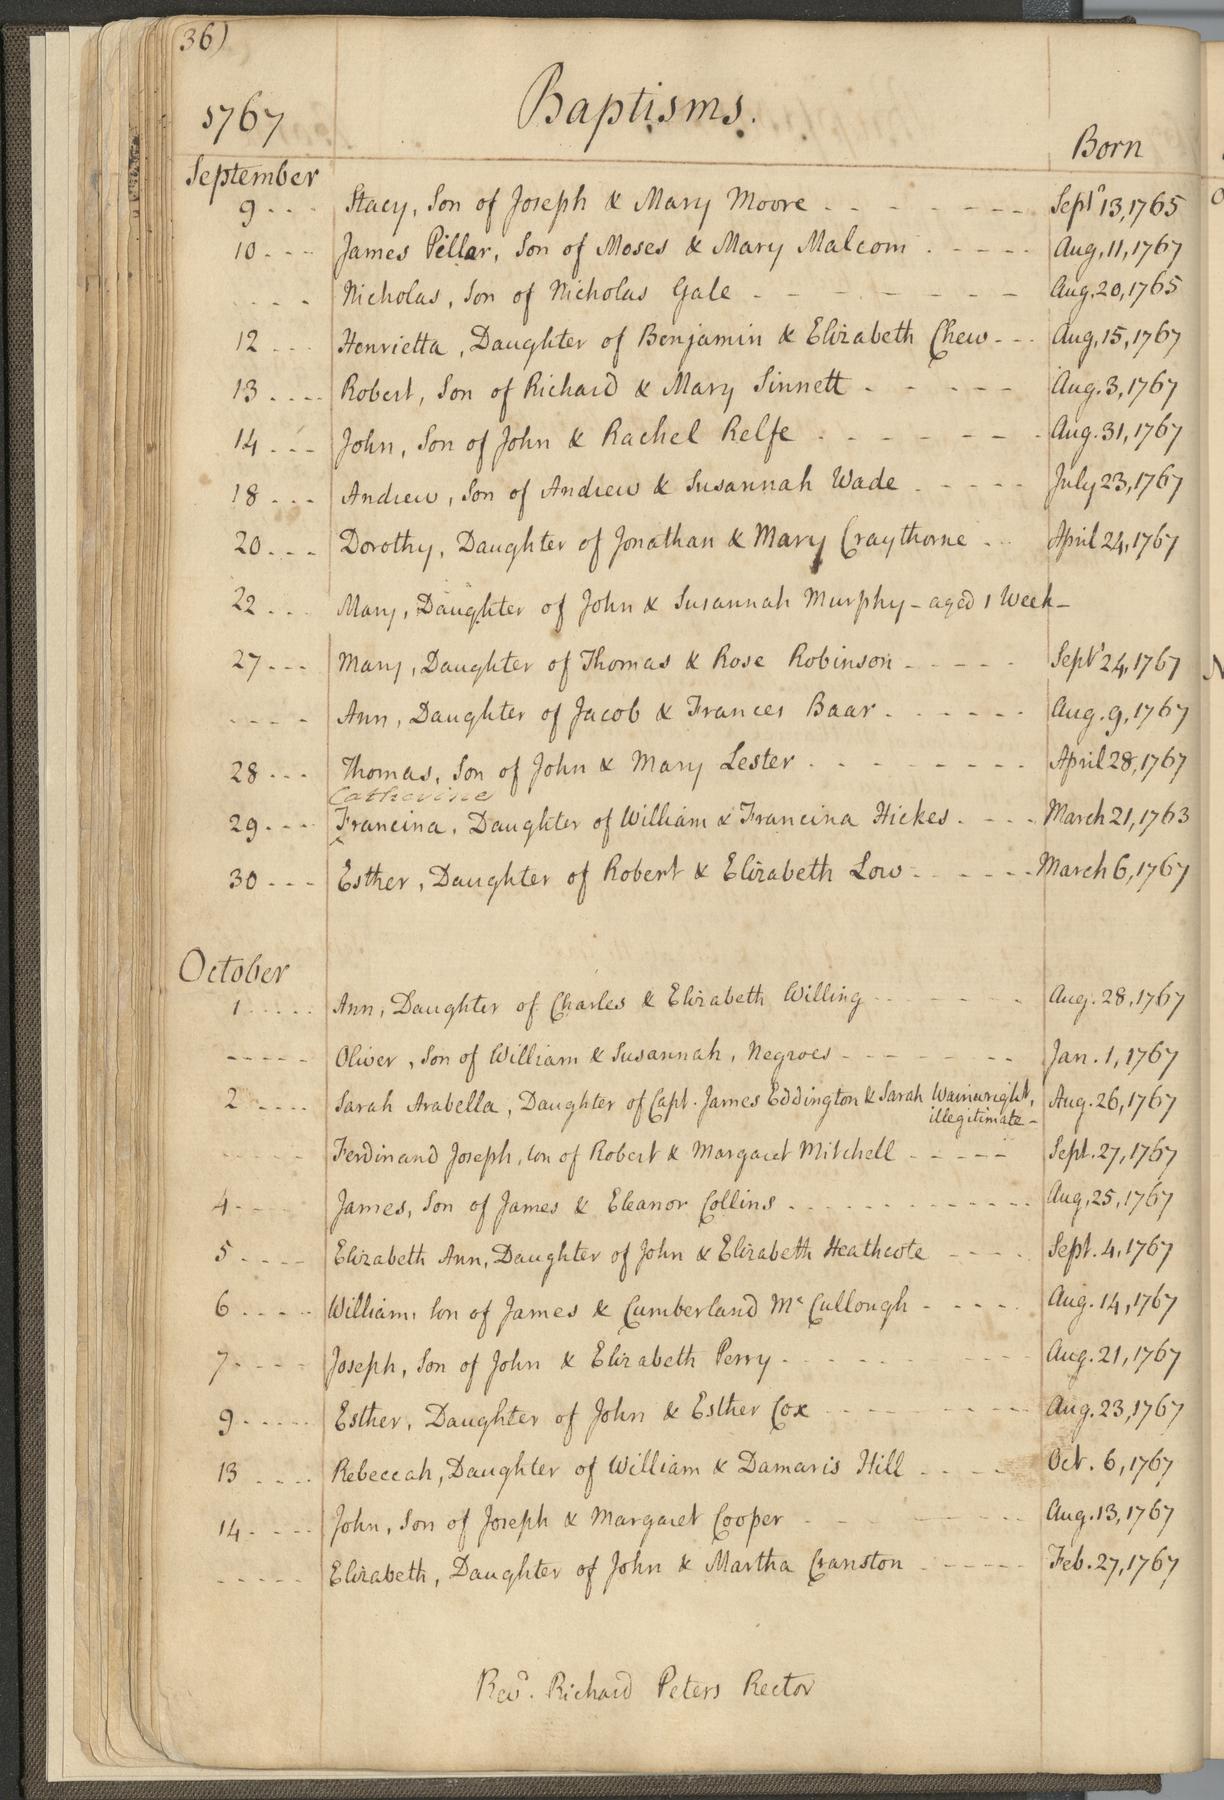 36)
1767
Baptisms.
Born
September
9 - - - Stacy, Son of Joseph & Mary Moore - - - - - - - - Sept.r 13, 1765
10 - - - James Pillar, Son of Moses & Mary Malcom - - - - - Aug. 11, 1767
- - - - Nicholas, Son of Nicholas Gale - - - - - - - - Aug. 20, 1765
12 - - - Henrietta, Daughter of Benjamin & Elizabeth Chew - - - Aug. 15, 1767
13 - - - - Robert, Son of Richard & Mary Sinnett - - - - - Aug. 3, 1767
14 - - - John, Son of John & Rachel Relfe - - - - - - - Aug. 31, 1767
18 - - - Andrew, Son of Andrew & Susannah Wade - - - - - July 23, 1767
20 - - - Dorothy, Daughter of Jonathan & Mary Craythorne - - - April 24, 1767
22 - - - Mary, Daughter of John & Susannah Murphy - aged 1 Week -
27 - - - Mary, Daughter of Thomas & Rose Robinson - - - - - Sept.r 24, 1767
- - - - Ann, Daughter of Jacob & Frances Baar - - - - - - Aug. 9, 1767
28 - - - Thomas, Son of John & Mary Lester - - - - - - - - April 28, 1767
Catherine
29 - - - ^Francina, Daughter of William & Francina Hickes - - - - March 21, 1763
30 - - - Esther, Daughter of Robert & Elizabeth Low - - - - - - March 6, 1767
October
1 - - - - - Ann, Daughter of Charles & Elizabeth Willing - - - - - - Aug. 28, 1767
- - - - - Oliver, Son of William & Susannah, Negroes - - - - - - - - Jan. 1, 1767
2 - - - - Sarah Arabella, Daughter of Capt. James Eddington & Sarah Wainwright, Aug. 26, 1767
illegitimate -
- - - - - Ferdinand Joseph, Son of Robert & Margaret Mitchell - - - - - Sept. 27, 1767
4 - - - - James, Son of James & Eleanor Collins - - - - - - - - - - - Aug. 25, 1767
5 - - - - Elizabeth Ann, Daughter of John & Elizabeth Heathcote - - - - Sept. 4, 1767
6 - - - - William, Son of James & Cumberland Mc Cullough - - - - - Aug. 14, 1767
7 - - - - Joseph, Son of John & Elizabeth Perry - - - - - - - - - - Aug. 21, 1767
9 - - - - - Esther, Daughter of John & Esther Cox - - - - - - - - - Aug. 23, 1767
13 - - - - Rebeccah, Daughter of William & Damaris Hill - - - - Oct. 6, 1767
14 - - - - John, Son of Joseph & Margaret Cooper - - - - - - - - Aug. 13, 1767
- - - - - Elizabeth, Daughter of John & Martha Cranston - - - - - - Feb. 27, 1767
Revd. Richard Peters Rector